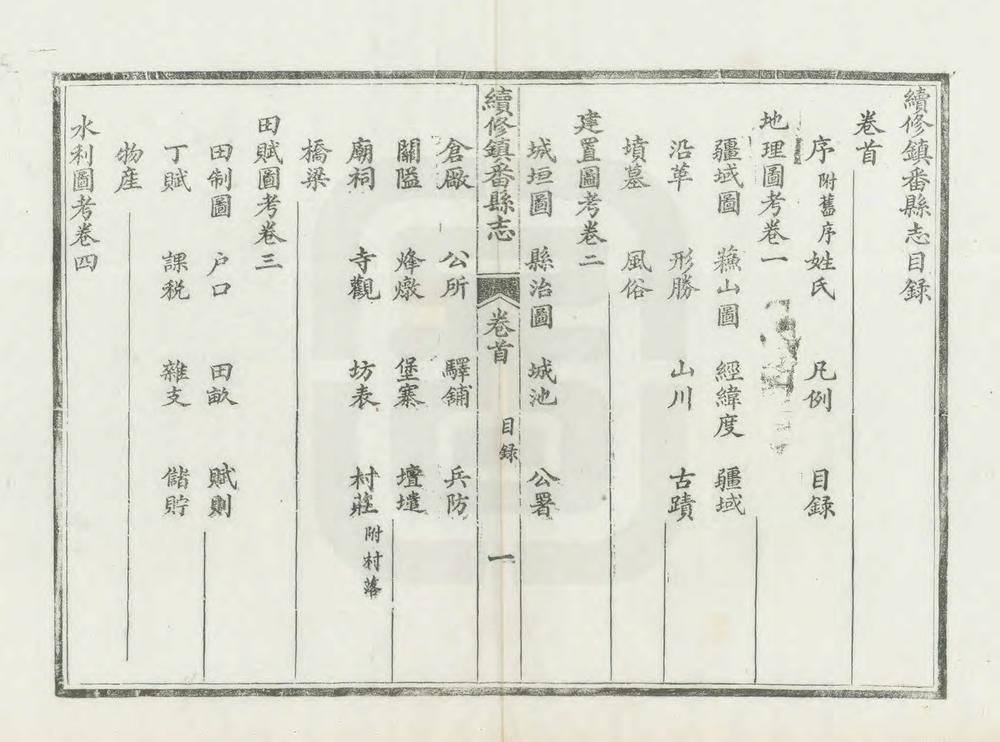 續修鎮番縣志目録
卷首
序附舊序 姓氏 凡例 目録
地理圖考卷一
疆域圖 蘓山圖 經緯度 疆域
沿革 形勝 山川 古蹟
墳墓 風俗
建置圖考卷二
城垣圖 縣治圖 城池 公署
續修鎮番縣志 卷首 目録 一
倉厫 公所 驛鋪 兵防
關隘 烽燉 堡寨 壇壝
廟祠 寺觀 坊表 村莊附村落
橋梁
田賦圖考卷三
田制圖 户口 田畝 賦則
丁賦 課税 雜支 儲貯
物産
水利圖考卷四